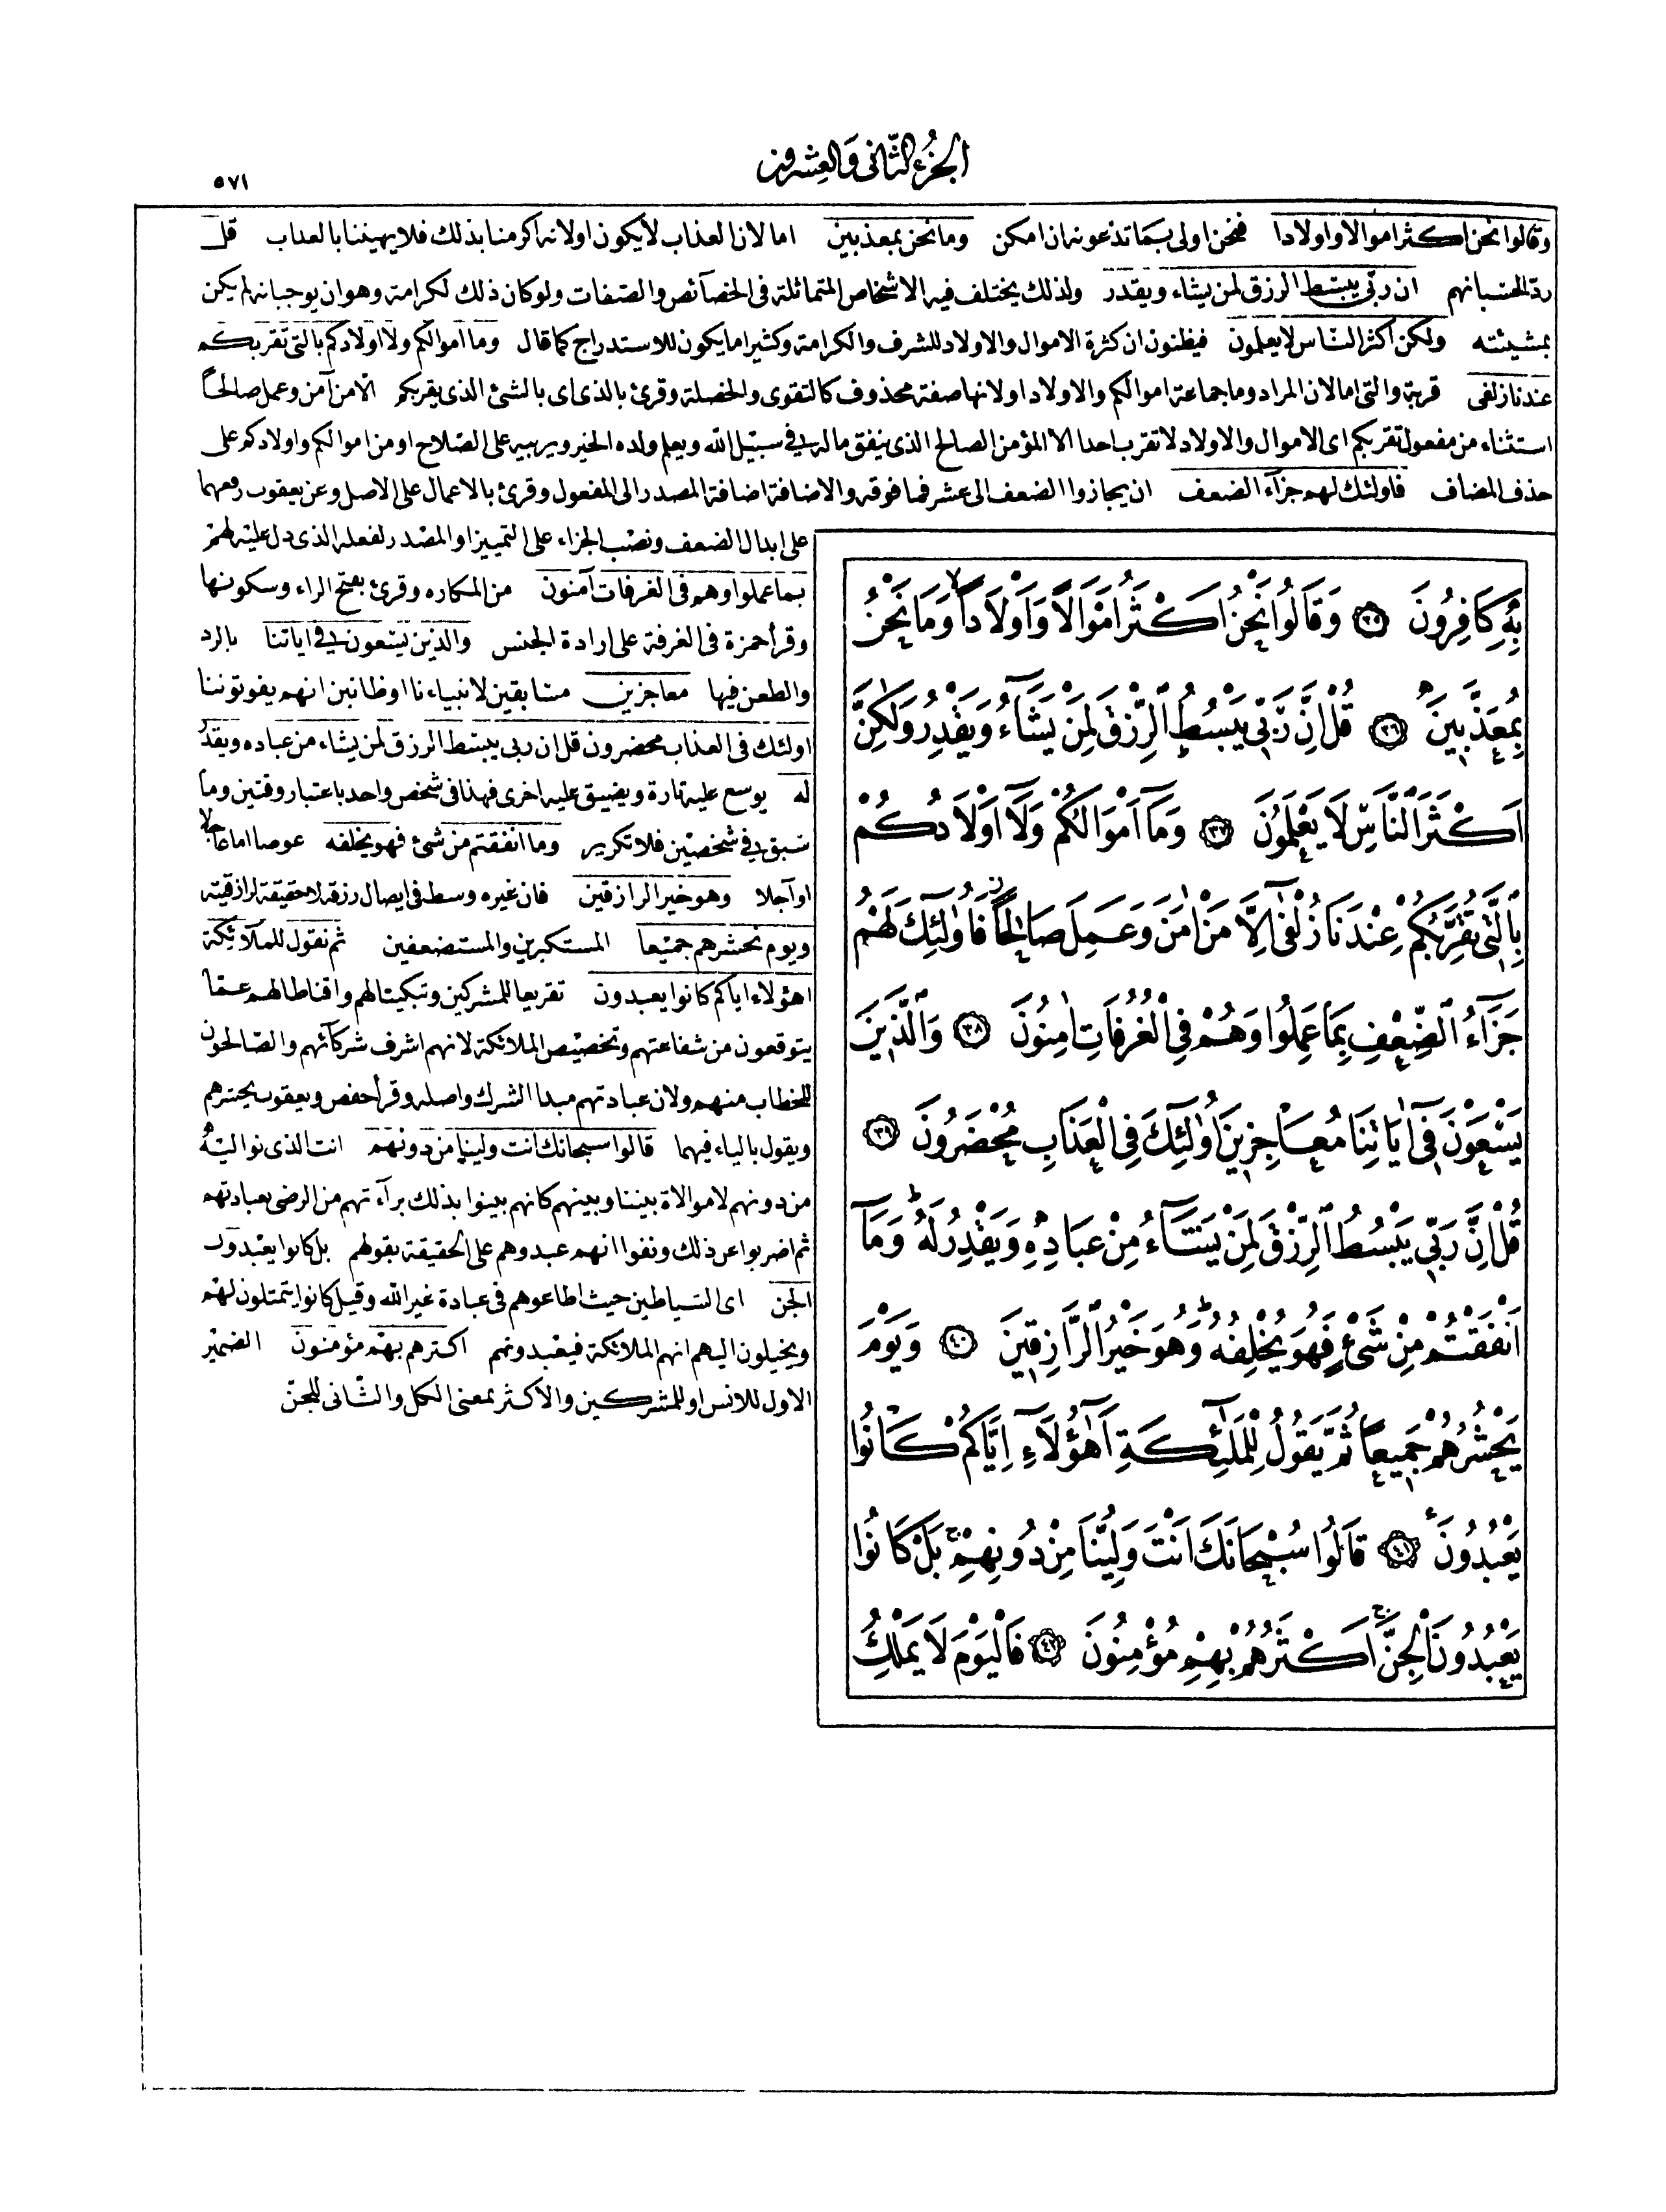 الجزء الثانى والعشرون
٥٧١
وقالوا نحن اكثر اموالا واولادا فنحن اولى بما تدعونه ان امكن وما نحن بمعذبين اما لان العذاب لا يكون او لانه اكرمنا بذلك فلا يهيننا بالعداب قل
ردّ الحسبانهم ان ربى يبسط الرزق لمن يشاء ويقدر ولذلك يختلف فيه الاشخاص المتماثلة فى الخصائص والصفات ولو كان ذلك لكرامة وهوان يوجبانه لم يكن
بمشيئته ولكن اكثر الناس لا يعلمون فيظنون ان كثرة الاموال والاولاد للشرف والكرامة وكثيرا ما يكون للاستدراج كما قال وما اموالكم ولا اولادكم بالتى تقربكم
عندنا زلفى قربة والتى اما لان المراد وما جماعة اموالكم والاولاد او لانها صفة محذوف كالتقوى والخصلة وقرئ بالذى اى بالشئ الذى يقربكم الا من آمن وعمل صالحا
استثناء من مفعول تقربكم اى الاموال والاولاد لا تقرب احدا الا المؤمن الصالح الذى ينفق ماله فى سبيل الله ويعلم ولده الخير ويربيه على الصلاح او من اموالكم واولادكم على
حذف المضاف فاولئك لهم جزآء الضعف ان يجازوا الضعف الى عشر فما فوقه والاضافة اضافة المصدر الى المفعول وقرئ بالاعمال على الاصل وعن يعقوب رفعهما
على ابدال الضعف ونصب الجزاء على التمييز او المصدر لفعله الذى دل عليه لهم
بما عملوا وهم فى الغرفات آمنون من المكاره وقرئ بفتح الراء وسكونها
وقرأ حمزة فى الغرفة على ارادة الجنس والذين يسعون فى اياتنا بالرد
والطعن فيها معاجزين مسابقين لانبياءنا او ظانين انهم يفوتوننا
اولئك فى العذاب محضرون قل ان ربى يبسط الرزق لمن يشاء من عباده ويقدر
له يوسع عليه تارة ويضيق عليه اخرى فهذا فى شخص واحد باعتبار وقتين وما
سبق فى شخصين فلا تكرير وما انفقتم من شئ فهو يخلفه عوضا اما عاجلا
او آجلا وهو خير الرازقين فان غيره وسط فى ايصال رزقه لا حقيقة لرازقيته
ويوم نحشرهم جميعا المستكبرين والمستضعفين ثم نقول للملآئكة
اهؤلاء اياكم كانوا يعبدون تقريعا للمشركين وتبكيتا لهم واقناطا لهم عما
يتوقعون من شفاعتهم وتخصيص الملائكة لانهم اشرف شركآئهم والصالحون
للخطاب منهم ولان عبادتهم مبدا الشرك واصله وقرأ حفص ويعقوب يحشرهم
ويقول بالياء فيهما قالوا سبحانك انت ولينا من دونهم انت الذى نواليه
من دونهم لا موالاة بيننا وبينهم كانهم بينوا بذلك برآءتهم من الرضى بعبادتهم
ثم اضربوا عن ذلك ونفوا انهم عبدوهم على الحقيقة بقولهم بل كانوا يعبدون
الجن اى الشياطين حيث اطاعوهم فى عبادة غير الله وقيل كانوا يتمثلون لهم
ويخيلون اليهم انهم الملائكة فيعبدونهم اكثرهم بهم مؤمنون الضمير
الاول للانس او للمشركين والاكثر بمعنى الكل والثانى للجن
بِهِ كَافِرُونَ ﴿٣٥﴾ وَقَالُوا نَحْنُ اَكْثَرُ اَمْوَالاً وَاَوْلَاداً وَمَا نَحْنُ
بِمُعَذَّبِينَ ﴿٣٦﴾ قُلْ اِنَّ رَبِّى يَبْسُطُ الرِّزْقَ لِمَنْ يَشَاءُ وَيَقْدِرُ وَلٰكِنَّ
اَكْثَرَ النَّاسِ لَا يَعْلَمُونَ ﴿٣٧﴾ وَمَآ اَمْوَالُكُمْ وَلَآ اَوْلَادُكُمْ
بِالَّتِى تُقَرِّبُكُمْ عِنْدَنَا زُلْفٰى اِلَّا مَنْ اٰمَنَ وَعَمِلَ صَالِحاً فَاُولٰئِكَ لَهُمْ
جَزَآءُ الضِّعْفِ بِمَا عَمِلُوا وَهُمْ فِى الْغُرُفَاتِ اٰمِنُونَ ﴿٣٨﴾ وَالَّذِينَ
يَسْعَوْنَ فِىٓ اٰيَاتِنَا مُعَاجِزِينَ اُولٰٓئِكَ فِى الْعَذَابِ مُحْضَرُونَ ﴿٣٩﴾
قُلْ اِنَّ رَبِّى يَبْسُطُ الرِّزْقَ لِمَنْ يَشَآءُ مِنْ عِبَادِهِ وَيَقْدِرُ لَهُ وَمَآ
اَنْفَقْتُمْ مِنْ شَىْءٍ فَهُوَ يُخْلِفُهُ وَهُوَ خَيْرُ الرَّازِقِينَ ﴿٤٠﴾ وَيَوْمَ
يَحْشُرُهُمْ جَمِيعاً ثُمَّ يَقُولُ لِلْمَلٰٓئِكَةِ اَهٰٓؤُلَآءِ اِيَّاكُمْ كَانُوا
يَعْبُدُونَ ﴿٤١﴾ قَالُوا سُبْحَانَكَ اَنْتَ وَلِيُّنَا مِنْ دُونِهِمْ بَلْ كَانُوا
يَعْبُدُونَ الْجِنَّ اَكْثَرُهُمْ بِهِمْ مُؤْمِنُونَ ﴿٤٢﴾ فَالْيَوْمَ لَا يَمْلِكُ